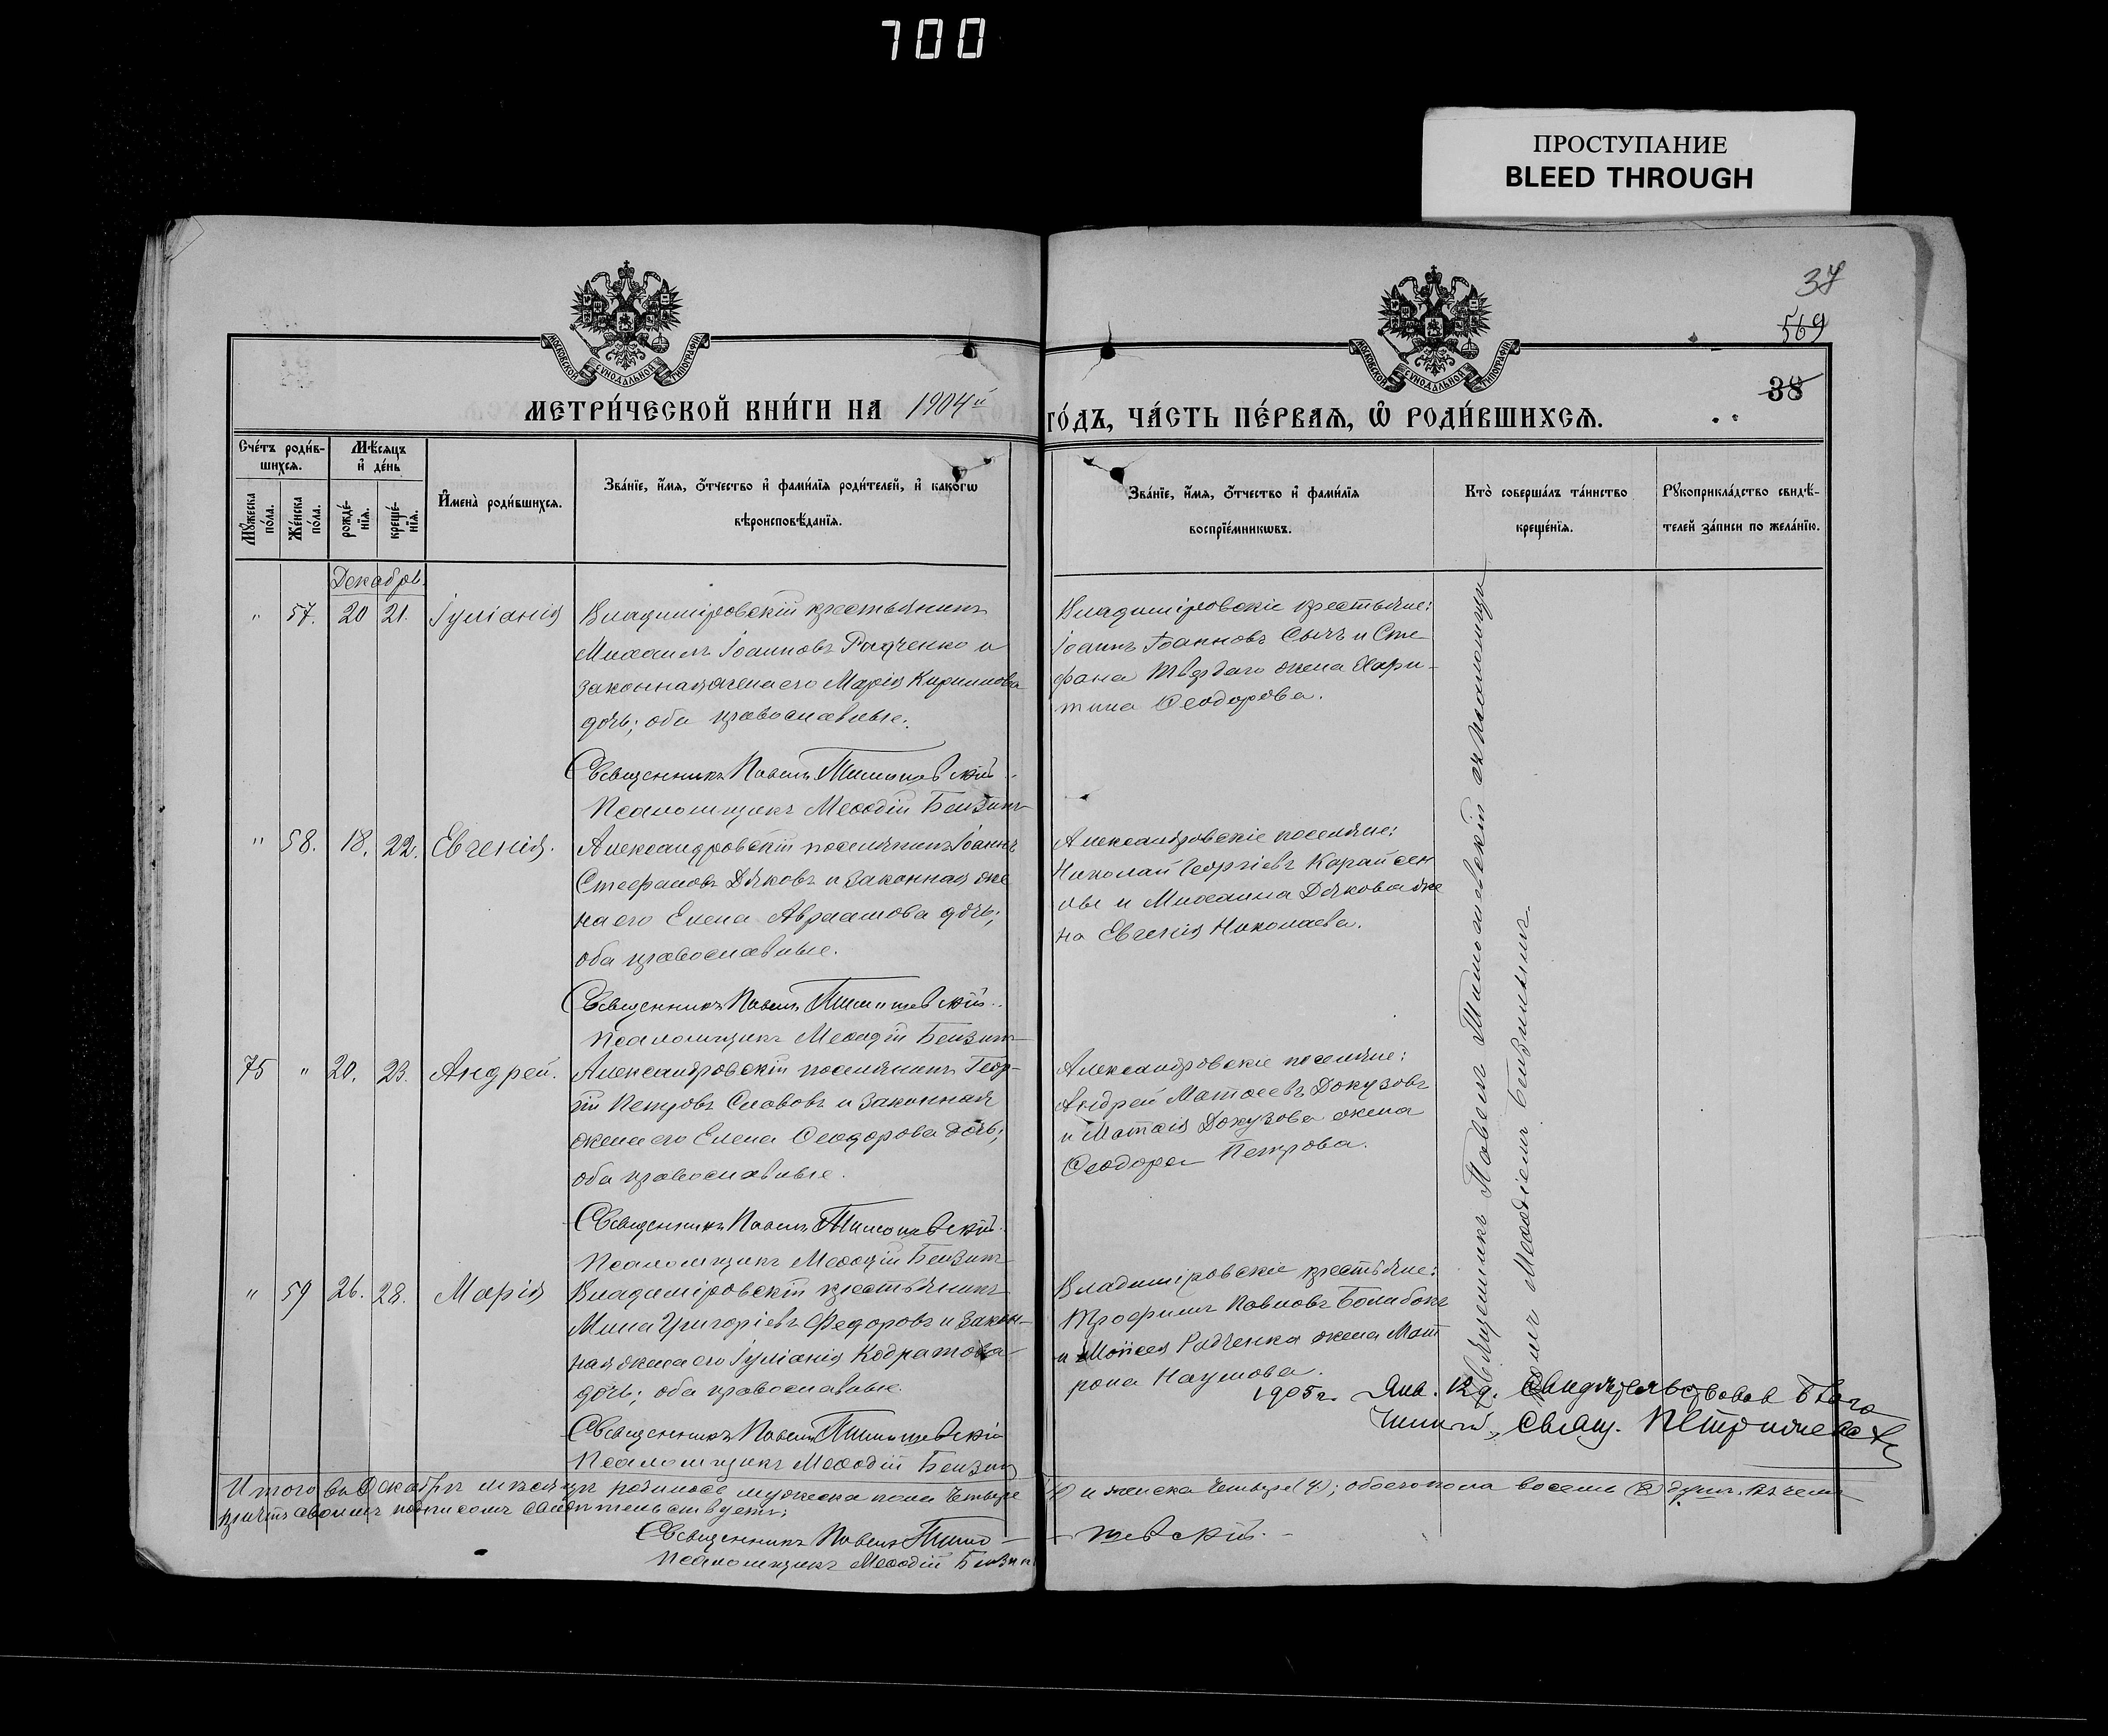 700
ПРОСТУПАНИЕ
BLEED THROUGH
37
569
38
МОСКОВСКОЙ СУНОДАЛЬНОЙ ТИПОГРАФІИ
МОСКОВСКОЙ СУНОДАЛЬНОЙ ТИПОГРАФІИ
МЕТРИ́ЧЕСКОЙ КНИ́ГИ НА 1904й ГО́ДЪ, ЧА́СТЬ ПЕ́РВАЯ, Ѿ РОДИ́ВШИХСЯ.
Сче́тъ роди́в-
шихся.
Мѣ́сяцъ
и҆ де́нь
Мꙋ́жеска
по́ла.
Же́нска
по́ла.
рожде́-
нїя.
креще́-
нїя.
И҆мена̀ роди́вшихся.
Зва́нїе, и҆́мя, ѻ҆́тчество и҆ фами́лїя роди́телей, и҆ како́гѡ
вѣроисповѣ́данїя.
Зва́нїе, и҆́мя, ѻ҆́тчество и҆ фами́лїя
воспрїе́мникѡвъ.
Кто̀ соверша́лъ та́инство
креще́нїя.
Рꙋкоприкла́дство свидѣ́-
телей за́писи по жела́нїю.
Декабрь.
" 57. 20 21. Іуліанія
Владиміровскій крестьянинъ
Михаилъ Іоанновъ Радченко и
законная жена его Марія Кириллова
дочь; оба православные.
Священникъ Павелъ Тимошевскій
Псаломщикъ Меѳодій Бензинъ
Владиміровскіе крестьяне:
Іоаннъ Іоанновъ Сычъ и Сте-
фана Твердаго жена Хари-
тина Ѳеодорова.
" 58. 18. 22. Евгенія.
Александровскій поселянинъ Іоаннъ
Стефановъ Дяковъ и законная же
на его Елена Авраамова дочь;
оба православные.
Священникъ Павелъ Тимошевскій
Псаломщикъ Меѳодій Бензинъ
Александровскіе поселяне:
Николай Георгіевъ Карайсен
лы и Михаила Дякова же
на Евгенія Николаева.
75 " 20. 23. Андрей.
Александровскій поселянинъ Геор-
гій Петровъ Славовъ и законная
жена его Елена Ѳеодорова дочь;
оба православные.
Священникъ Павелъ Тимошевскій
Псаломщикъ Меѳодій Бензинъ
Александровскіе поселяне:
Андрей Матѳеевъ Докузовъ
и Матѳія Докузова жена
Ѳеодора Петрова.
" 59 26. 28. Марія
Владиміровскій крестьянинъ
Мина Григоріевъ Федоровъ и закон-
ная жена его Іуліанія Кодратова
дочь; оба православные.
Священникъ Павелъ Тимошевскій
Псаломщикъ Меѳодій Бензинъ
Владиміровскіе крестьяне:
Трофимъ Павловъ
и Моисея Радченка жена Мат
рона Наумова.
Священникъ Павелъ Тимошевскій съ псаломщи
комъ Меѳодіемъ Бензинымъ.
1905 г. Янв. 12 д. свидѣтельствовалъ Благо
чинный, Свящ.
Итого въ Декабрѣ мѣсяцѣ родилось мужеска пола четыре (4) и женска четыре (4); обоего пола восемь (8) душъ. Въ чемъ
причтъ своимъ подписомъ свидѣтельствуетъ:
Священникъ Павелъ Тимо-
шевскій.
Псаломщикъ Меѳодій Бензинъ